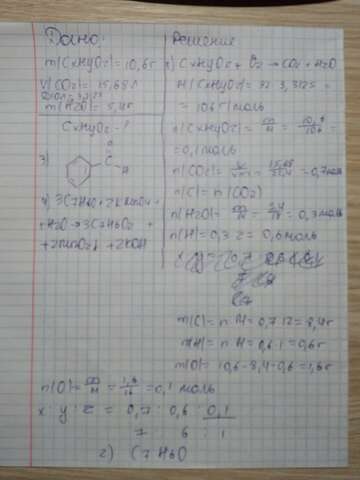 Дано:
m(CxHyOz)=10,6г
V(CO2)=15,68л
m(H2O)=5,4г
CxHyOz-?
3)
O
C
H
4) 3C7H6O+2KMnO4+
+H2O→3C7H6O2+
+2MnO2↓+2KOH
Решение
1) CxHyOz+O2→CO2+H2O
M(CxHyOz)=32·3,3125=
=106г/моль
n(CxHyOz)=m/M=10,6/106=
=0,1моль
n(CO2)=V/Vm=15,68/22,4=0,7моль
n(C)=n(CO2)
n(H2O)=m/M=5,4/18=0,3моль
n(H)=0,3·2=0,6моль
m(C)=n·M=0,7·12=8,4г
m(H)=n·M=0,6·1=0,6г
m(O)=10,6-8,4-0,6=1,6г
n(O)=m/M=1,6/16=0,1 моль
x:y:z=0,7:0,6:0,1
7 6 : 1
2) C7H6O